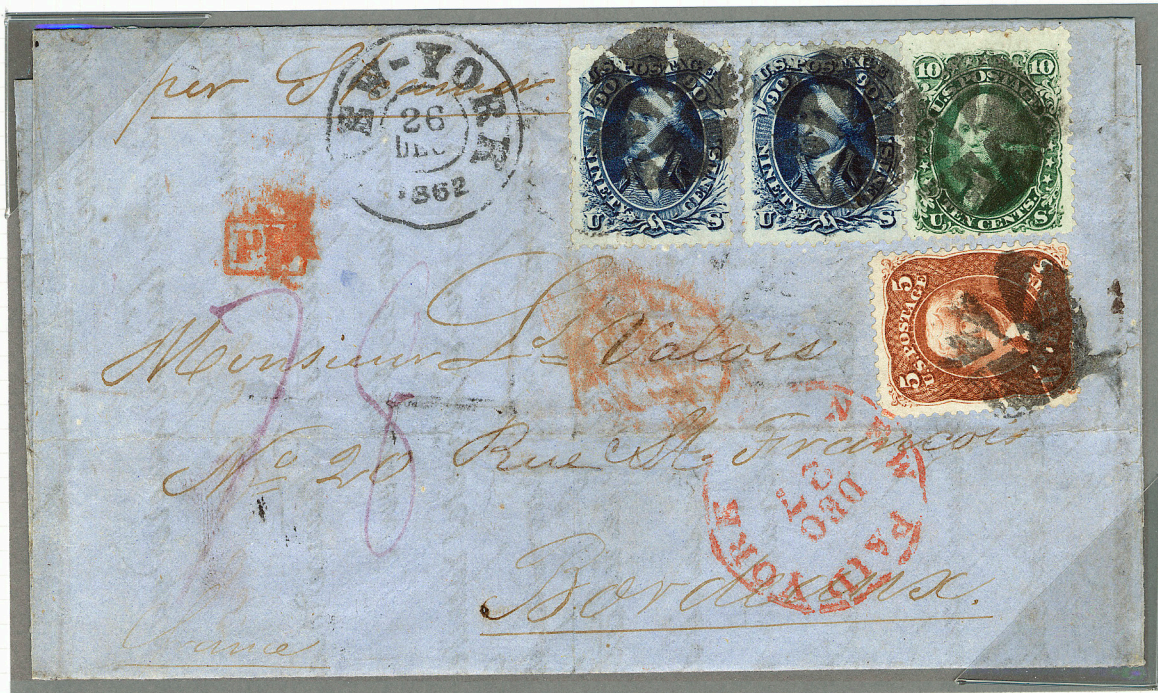 per Steamer
NEW-YORK
26
DEC
1862
U.S. POSTAGE
90 90
NINETY CENTS
U S
U.S. POSTAGE
90 90
NINETY CENTS
U S
10 10
U.S. POSTAGE
TEN CENTS.
U S
5
U.S. POSTAGE
5
P.D.
78
Monsieur Ls Valois
No 20 Rue St. François
NEW YORK
DEC
27
PAID
Bordeaux.
France